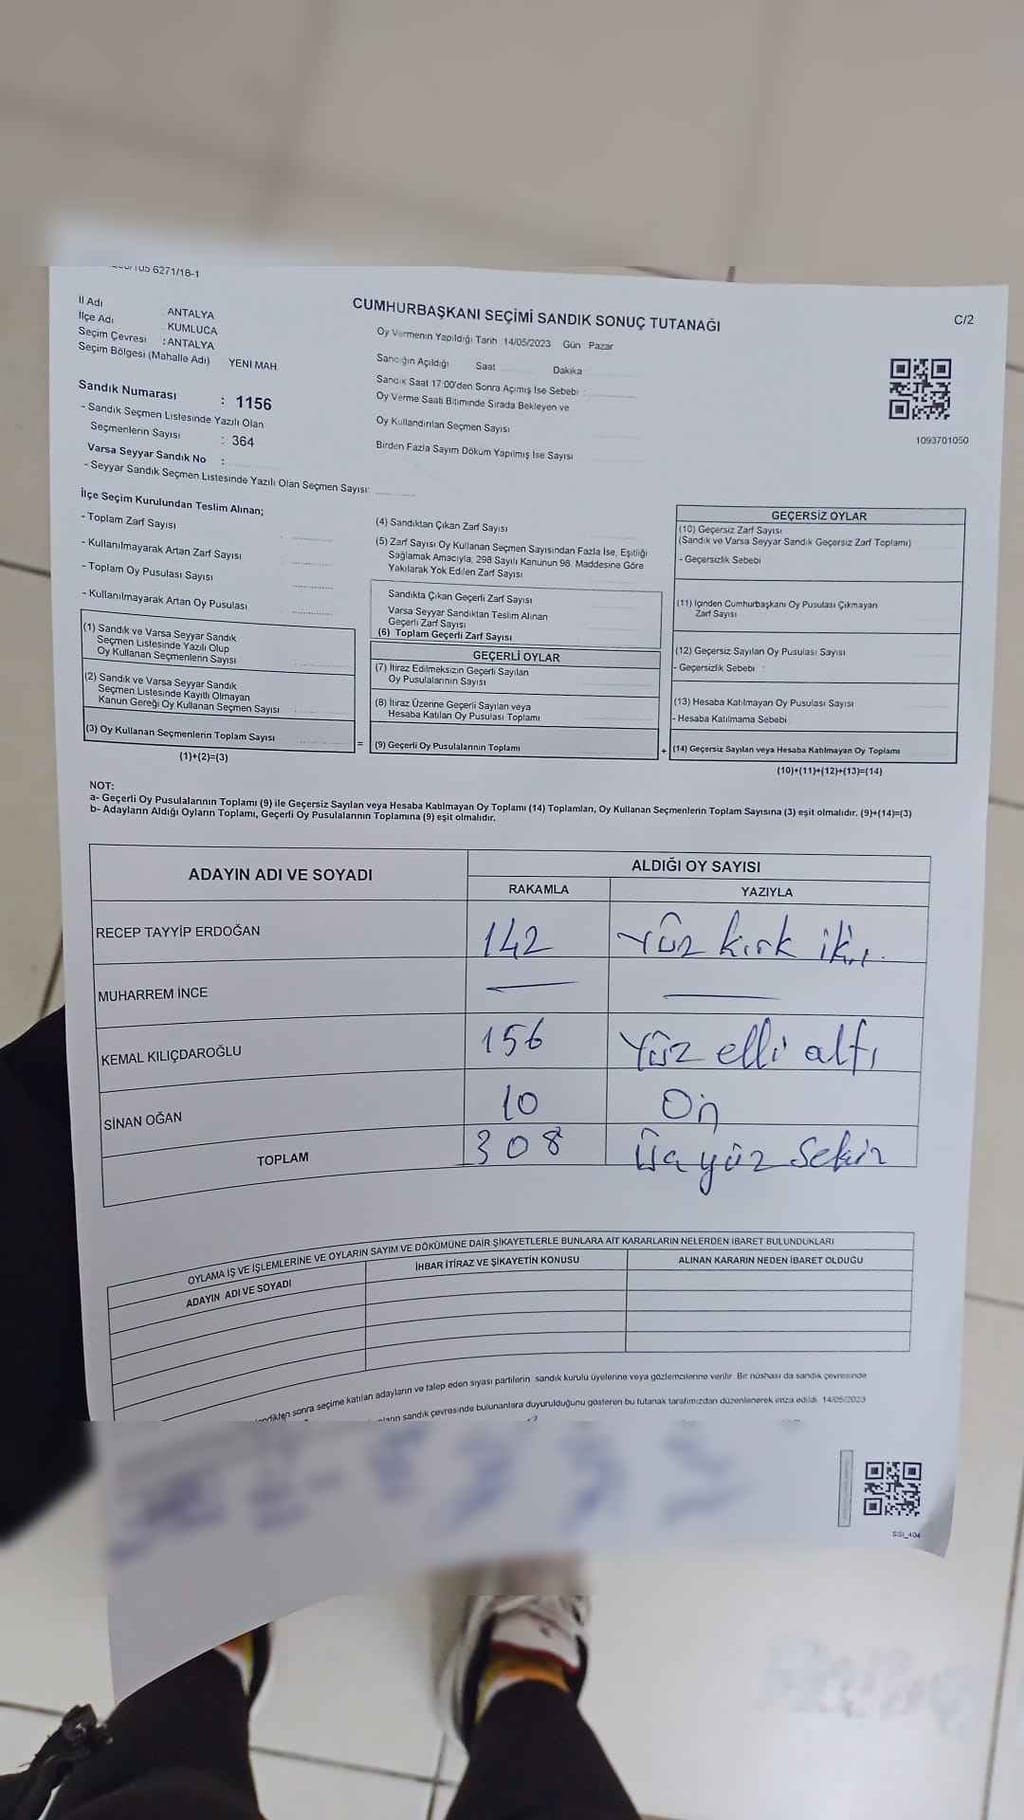 6271/18-1
İl Adı ANTALYA
İlçe Adı KUMLUCA
Seçim Çevresi : ANTALYA
Seçim Bölgesi (Mahalle Adı) YENİ MAH.
Sandık Numarası : 1156
- Sandık Seçmen Listesinde Yazılı Olan
Seçmenlerin Sayısı : 364
Varsa Seyyar Sandık No :
- Seyyar Sandık Seçmen Listesinde Yazılı Olan Seçmen Sayısı:
CUMHURBAŞKANI SEÇİMİ SANDIK SONUÇ TUTANAĞI
C/2
Oy Vermenin Yapıldığı Tarih 14/05/2023 Gün Pazar
Sandığın Açıldığı Saat Dakika
Sandık Saat 17:00'den Sonra Açılmış İse Sebebi :
Oy Verme Saati Bitiminde Sırada Bekleyen ve
Oy Kullandırılan Seçmen Sayısı
Birden Fazla Sayım Döküm Yapılmış İse Sayısı
1093701050
İlçe Seçim Kurulundan Teslim Alınan;
- Toplam Zarf Sayısı :
- Kullanılmayarak Artan Zarf Sayısı
- Toplam Oy Pusulası Sayısı
- Kullanılmayarak Artan Oy Pusulası
(1) Sandık ve Varsa Seyyar Sandık
Seçmen Listesinde Yazılı Olup
Oy Kullanan Seçmenlerin Sayısı
(2) Sandık ve Varsa Seyyar Sandık
Seçmen Listesinde Kayıtlı Olmayan
Kanun Gereği Oy Kullanan Seçmen Sayısı
(3) Oy Kullanan Seçmenlerin Toplam Sayısı
(1)+(2)=(3)
(4) Sandıktan Çıkan Zarf Sayısı
(5) Zarf Sayısı Oy Kullanan Seçmen Sayısından Fazla İse, Eşitliği
Sağlamak Amacıyla; 298 Sayılı Kanunun 98. Maddesine Göre
Yakılarak Yok Edilen Zarf Sayısı
Sandıkta Çıkan Geçerli Zarf Sayısı
Varsa Seyyar Sandıktan Teslim Alınan
Geçerli Zarf Sayısı
(6) Toplam Geçerli Zarf Sayısı
GEÇERLİ OYLAR
(7) İtiraz Edilmeksizin Geçerli Sayılan
Oy Pusulalarının Sayısı
(8) İtiraz Üzerine Geçerli Sayılan veya
Hesaba Katılan Oy Pusulası Toplamı
= (9) Geçerli Oy Pusulalarının Toplamı
GEÇERSİZ OYLAR
(10) Geçersiz Zarf Sayısı
(Sandık ve Varsa Seyyar Sandık Geçersiz Zarf Toplamı)
- Geçersizlik Sebebi
(11) İçinden Cumhurbaşkanı Oy Pusulası Çıkmayan
Zarf Sayısı
(12) Geçersiz Sayılan Oy Pusulası Sayısı
- Geçersizlik Sebebi :
(13) Hesaba Katılmayan Oy Pusulası Sayısı
- Hesaba Katılmama Sebebi
+ (14) Geçersiz Sayılan veya Hesaba Katılmayan Oy Toplamı
(10)+(11)+(12)+(13)=(14)
NOT:
a- Geçerli Oy Pusulalarının Toplamı (9) ile Geçersiz Sayılan veya Hesaba Katılmayan Oy Toplamı (14) Toplamları, Oy Kullanan Seçmenlerin Toplam Sayısına (3) eşit olmalıdır. (9)+(14)=(3)
b- Adayların Aldığı Oyların Toplamı, Geçerli Oy Pusulalarının Toplamına (9) eşit olmalıdır.
ADAYIN ADI VE SOYADI
ALDIĞI OY SAYISI
RAKAMLA YAZIYLA
RECEP TAYYİP ERDOĞAN 142 Yüz kırk iki.
MUHARREM İNCE — —
KEMAL KILIÇDAROĞLU 156 Yüz elli altı
SİNAN OĞAN 10 On
TOPLAM 308 Üç yüz sekiz
OYLAMA İŞ VE İŞLEMLERİNE VE OYLARIN SAYIM VE DÖKÜMÜNE DAİR ŞİKAYETLERLE BUNLARA AİT KARARLARIN NELERDEN İBARET BULUNDUKLARI
ADAYIN ADI VE SOYADI İHBAR İTİRAZ VE ŞİKAYETİN KONUSU ALINAN KARARIN NEDEN İBARET OLDUĞU
sonra seçime katılan adayların ve talep eden siyasi partilerin sandık kurulu üyelerine veya gözlemcilerine verilir. Bir nüshası da sandık çevresinde
sandık çevresinde bulunanlara duyurulduğunu gösteren bu tutanak tarafımızdan düzenlenerek imza edildi. 14/05/2023